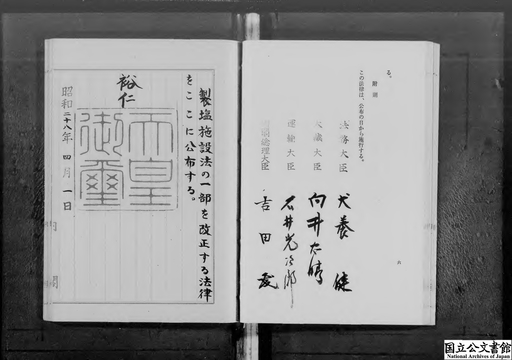 る。
附則
この法律は、公布の日から施行する。
法務大臣 犬養健
大蔵大臣 向井忠晴
運輸大臣 石井光次郎
内閣総理大臣 吉田茂
製塩施設法の一部を改正する法律
をここに公布する。
裕仁
天皇御璽
昭和二十八年四月一日
内閣
国立公文書館
National Archives of Japan